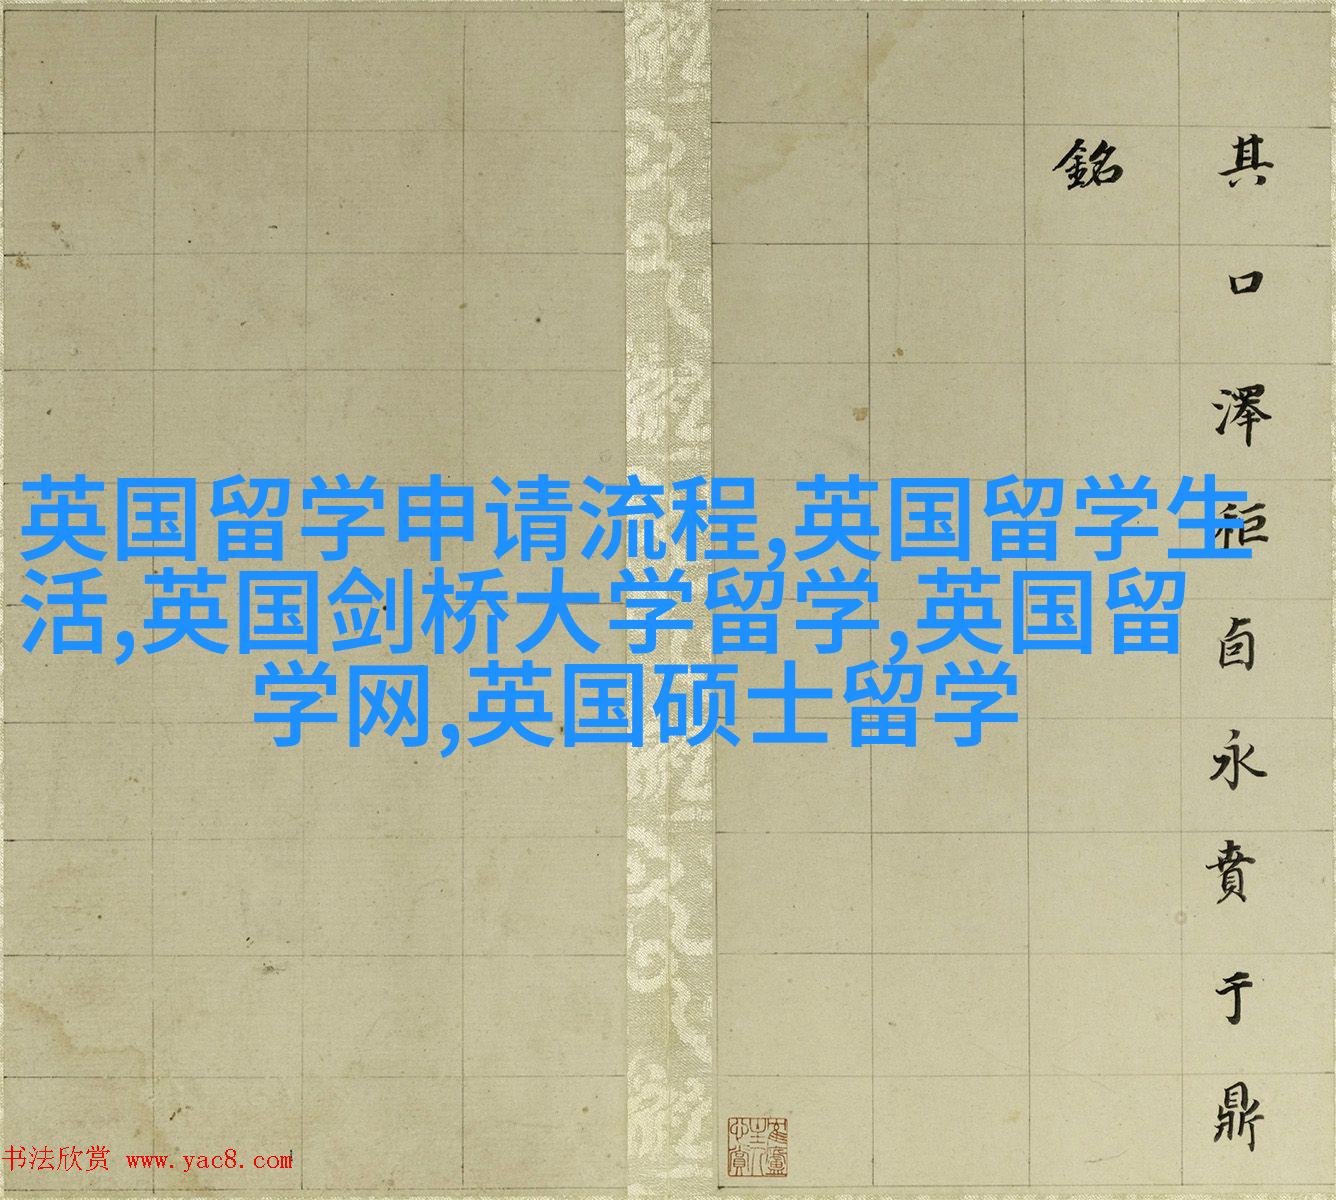 其口澤秬卣永賁于鼎
銘
英国留学申请流程,英国留学生
活,英国剑桥大学留学,英国留
学网,英国硕士留学
书法欣赏 www.yac8.com